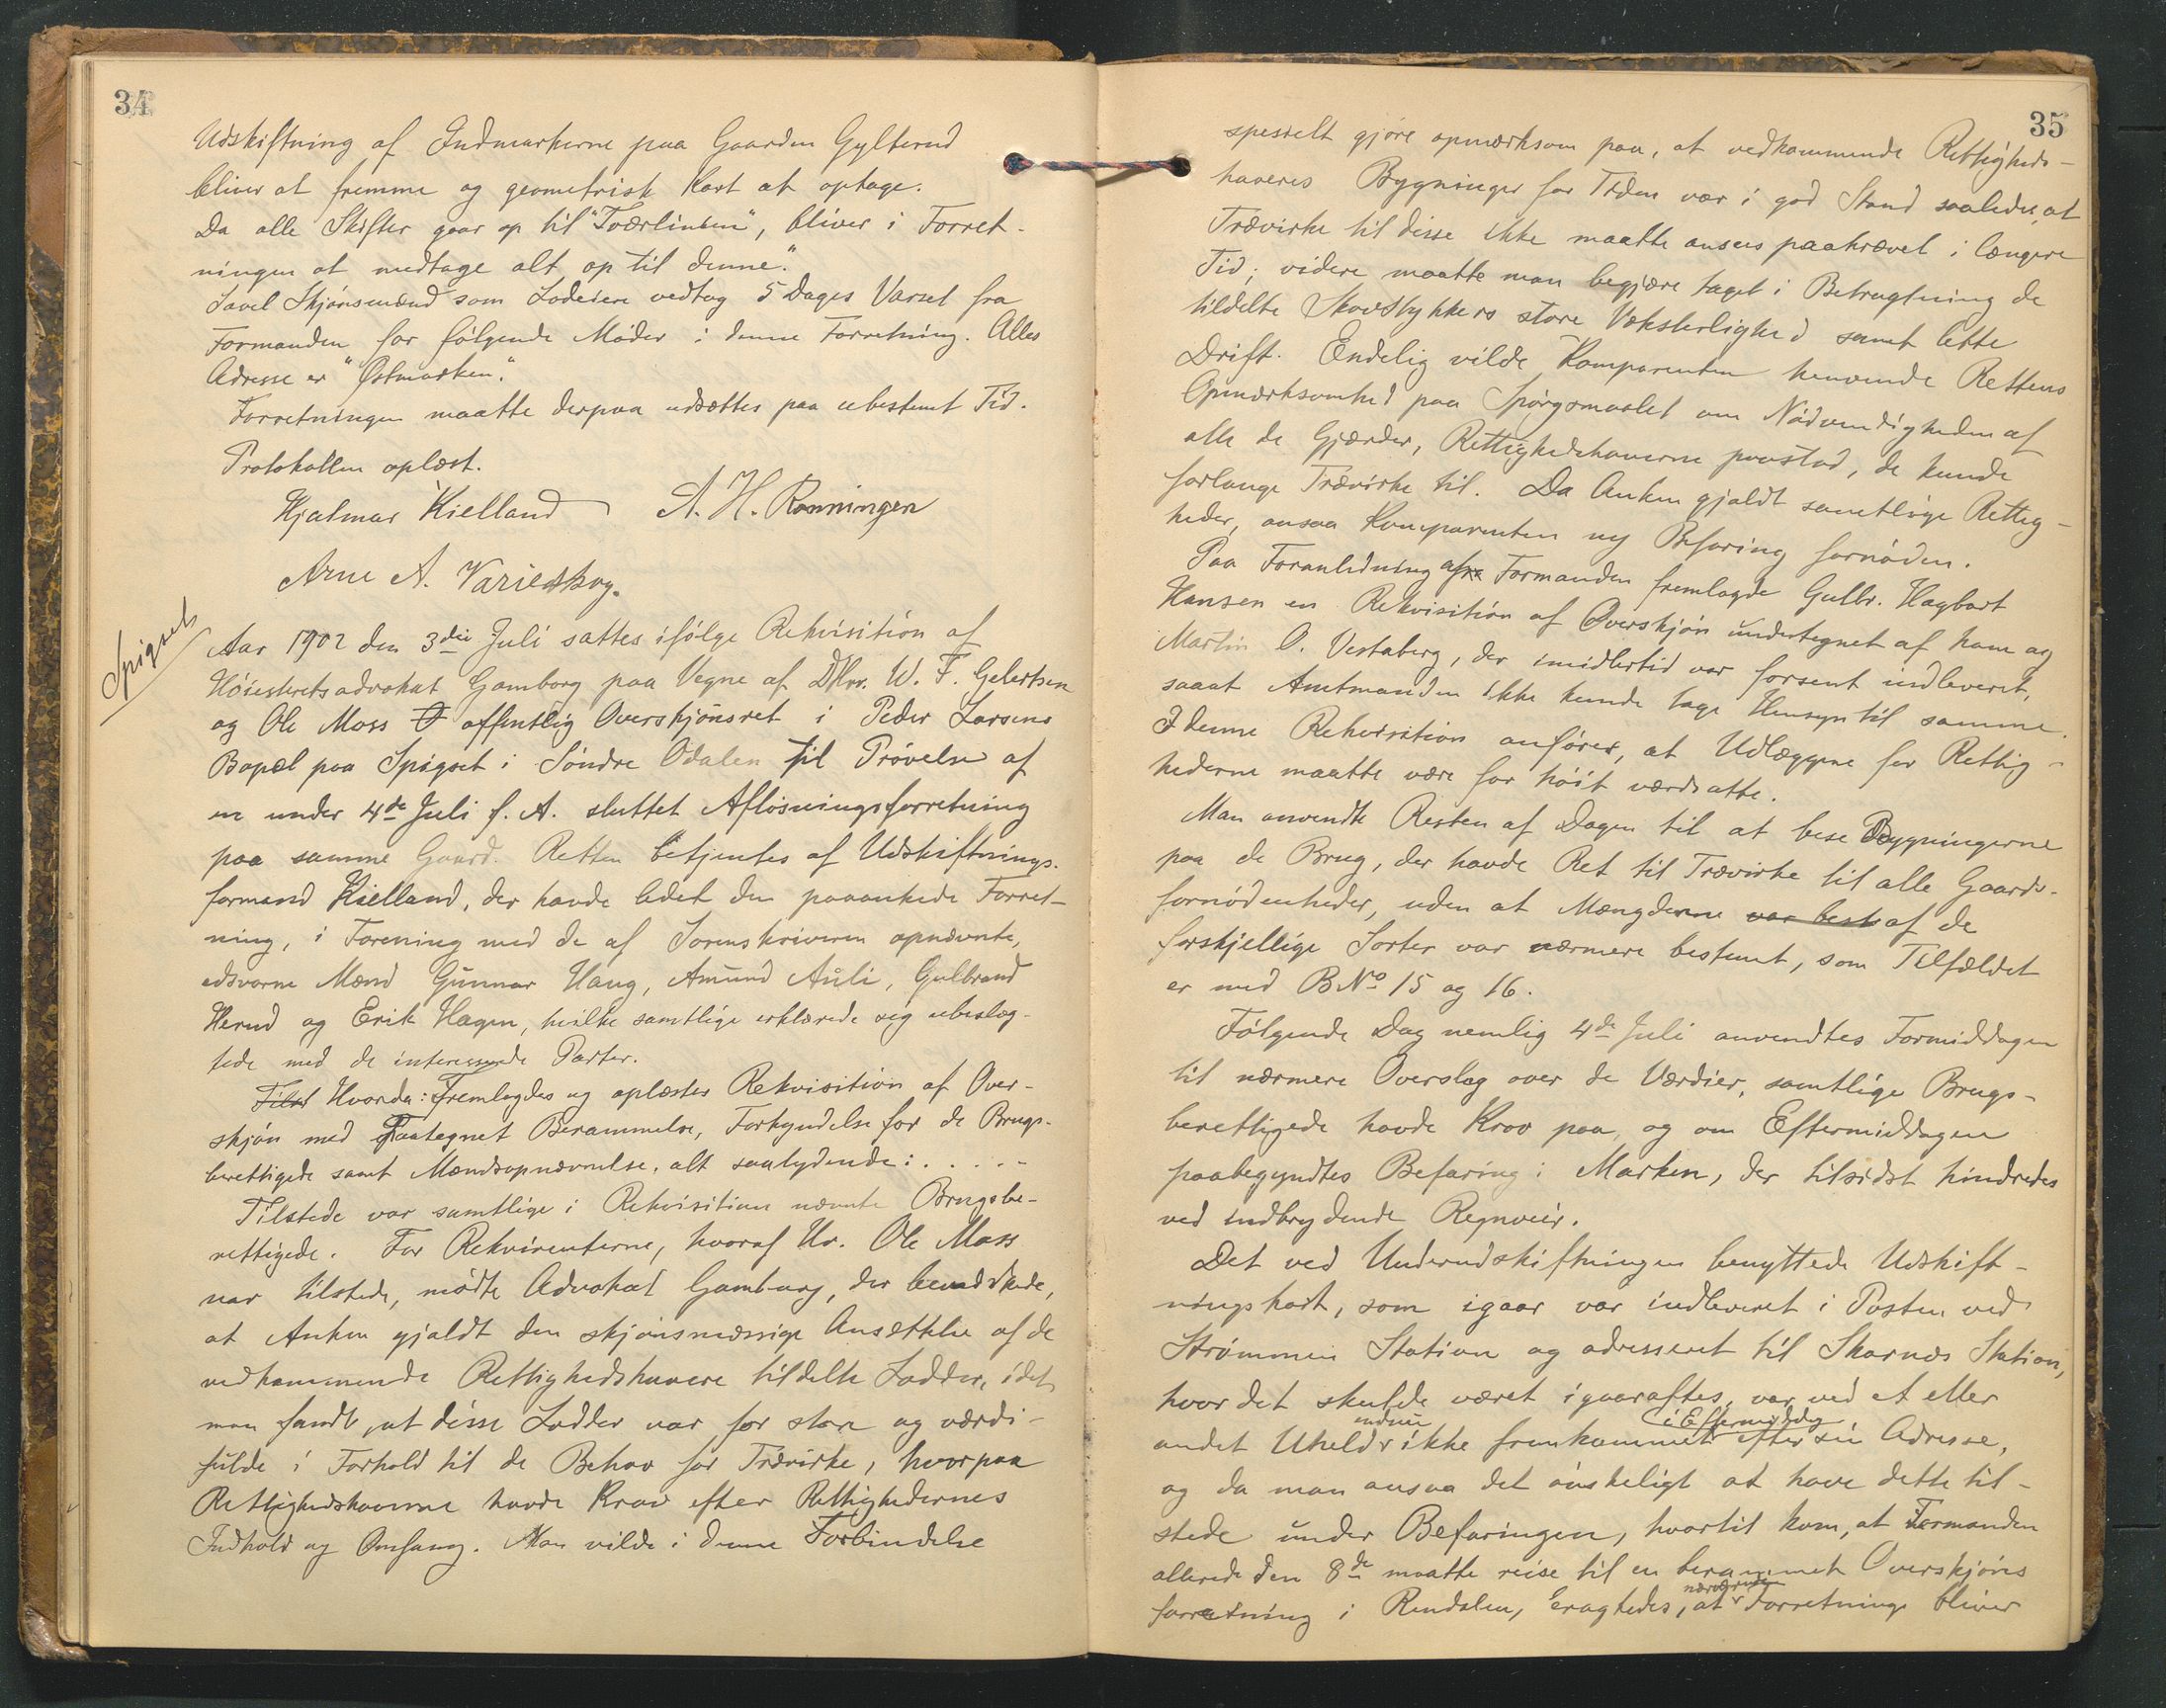 34
Udskiftning af Indmarkerne paa Gaarden Gylterud
bliver at fremme og geometrisk Kart at optage.
Da alle Skifter gaar op til "Tværlinien", bliver i Forret-
ningen at medtage alt op til denne".
Savel Skjønsmænd som Lodeiere vedtog 5 Dages Varsel fra
Formanden for følgende Møder i denne Forretning. Alles
Adresse er "Østmarken".
Forretningen maatte derpaa udsættes paa ubestemt Tid.
Protokollen oplæst.
Hjalmar Kielland A. H. Rønningen
Arne A. Varildskog.
Spigset
Aar 1902 den 3die Juli sattes ifølge Rekvisition af
Høiesteretsadvokat Gamborg paa Vegne af DHrr. W. F. Gelertsen
og Ole Moss O offentlig Overskjønsret i Peder Larsens
Bopæl paa Spigset i Søndre Odalen til Prøvelse af
en under 4de Juli f. A. sluttet Afløsningsforretning
paa samme Gaard. Retten betjentes af Udskiftnings-
formand Kielland, der havde ledet den paaankede Forret-
ning, i Forening med de af Sorenskriveren opnævnte,
edsvorne Mænd Gunnar Haug, Amund Auli, Gulbrand
Herud og Erik Hagen, hvilke samtlige erklærede sig ubeslæg-
tede med de interesserede Parter.
Tilst Hvorda: Fremlagdes og oplæstes Rekvisition af Over-
skjøn med paategnet Berammelse, Forkyndelse for de Brugs-
berettigede samt Mændsopnævnelse, alt saalydende: . . . . -
Tilstede var samtlige i Rekvisitionen nævnte Brugsbe-
rettigede. For Rekvirenterne, hvoraf Hr. Ole Moss
var tilstede, mødte Advokat Gamborg, der bemærkede,
at Anken gjaldt den skjønsmæssige Ansættelse af de
vedkommende Rettighedshavere tildelte Lodder, idet
man fandt, at disse Lodder var for store og værdi-
fulde i Forhold til de Behov for Trævirke, hvorpaa
Rettighedshaverne havde Krav efter Rettighedernes
Indhold og Omfang. Man vilde i denne Forbindelse
35
spesielt gjøre opmærksom paa, at vedkommende Rettigheds-
haveres Bygninger for Tiden var i god Stand saaledes, at
Trævirke til disse ikke maatte ansees paakrævet i længere
Tid; videre maatte man begjære taget i Betragtning de
tildelte Skovstykkers store Væksterlighed samt lette
Drift. Endelig vilde Komparenten henvende Rettens
Opmærksomhed paa Spørgsmaalet om Nødvendigheden af
alle de Gjærder, Rettighedshaverne paastod, de kunde
forlange Trævirke til. Da Anken gjaldt samtlige Rettig-
heder, ansaa Komparenten ny Befaring fornøden.
Paa Foranledning af Formanden fremlagde Gulbr. Hagbart
Hansen en Rekvisition af Overskjøn undertegnet af ham og
Martin O. Vestaberg, der imidlertid var forsent indleveret,
saaat Amtmanden ikke kunde tage Hensyn til samme.
I denne Rekvisition anføres, at Udlæggene for Rettig-
hederne maatte være for høit værdsatte.
Man anvendte Resten af Dagen til at bese Bygningerne
paa de Brug, der havde Ret til Trævirke til alle Gaards-
fornødenheder, uden at Mængderne var best af de
forskjellige Sorter var nærmere bestemt, som Tilfældet
er med BNo 15 og 16.
Følgende Dag nemlig 4de Juli anvendtes Formiddagen
til nærmere Overslag over de Værdier, samtlige Brugs-
berettigede havde Krav paa, og om Eftermiddagen
paabegyndtes Befaring i Marken, der tilsidst hindredes
ved indbrydende Regnveir.
Det ved Underudskiftningen benyttede Udskift-
ningskart, som igaar var indleveret i Posten ved
Strømmen Station og adresseret til Skarnæs Station,
hvor det skulde været igaaraftes, var ved et eller
endnu i Eftermiddag
andet Uheld ikke fremkommet efter sin Adresse,
og da man ansaa det ønskeligt at have dette til-
stede under Befaringen, hvortil kom, at Formanden
allerede den 8de maatte reise til en berammet Overskjøns
nærværende
forretning i Rendalen, eragtedes, at Forretninge bliver